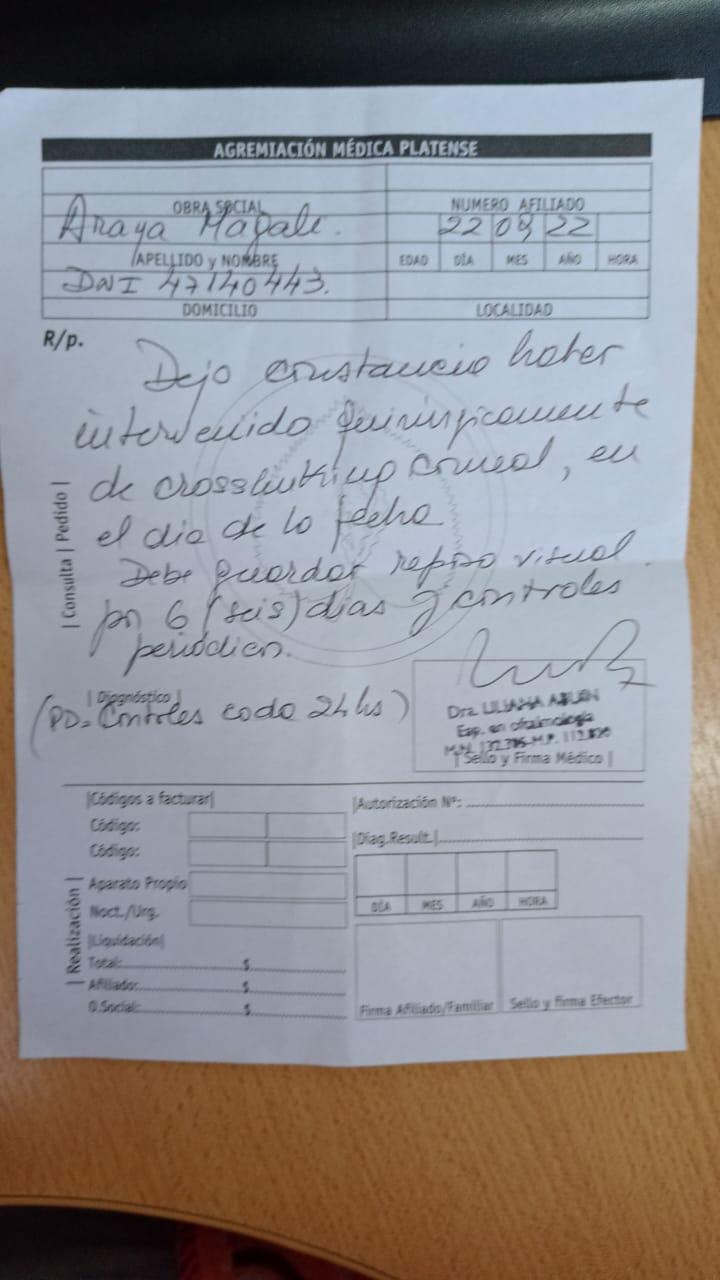 AGREMIACIÓN MÉDICA PLATENSE
OBRA SOCIAL NUMERO AFILIADO
Araya Magali. 22 09 22
APELLIDO y NOMBRE EDAD DÍA MES AÑO HORA
DNI 47140443.
DOMICILIO LOCALIDAD
R/p.
Dejo constancia haber
intervenido quirúrgicamente
de crosslinking corneal, en
el dia de la fecha
Debe guardar reposo visual.
por 6 (seis) dias y controles
periódicos.
| Consulta | Pedido |
| Diagnóstico |
(PD= Controles cada 24 hs)
Dra. LILIANA
Esp. en oftalmología
M.N. M.P.
| Sello y Firma Médico |
|Códigos a facturar| |Autorización N°:
Código:
Código: |Diag.Result.|
Aparato Propio
Noct./Urg. DÍA MES AÑO HORA
| Realización |
|Liquidación|
Total: $
Afiliado: $
O.Social: $
Firma Afiliado/Familiar Sello y firma Efector